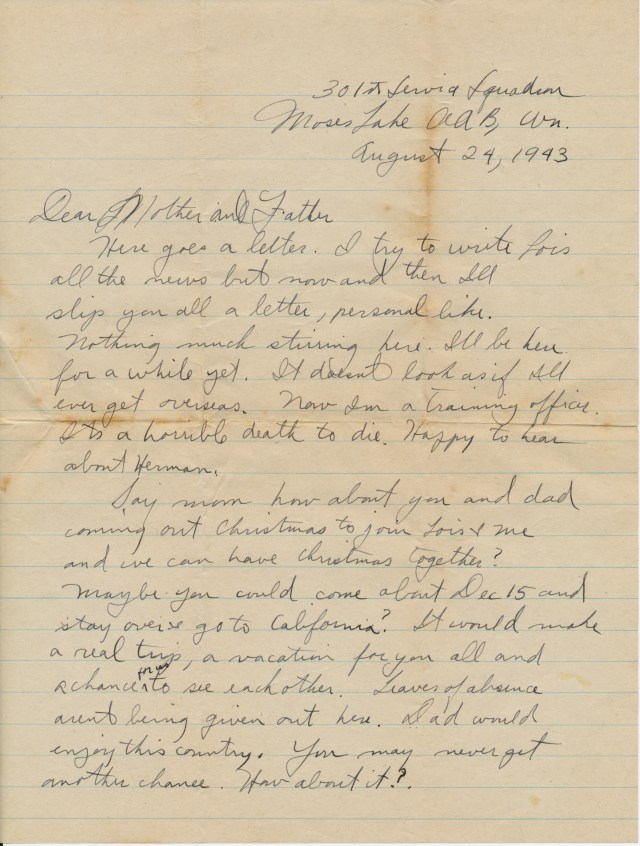 301st Service Squadron
Moses Lake AAB, Wn.
August 24, 1943
Dear Mother and Father
Here goes a letter. I try to write Lois
all the news but now and then Ill
slip you all a letter, personal like.
Nothing much stirring here. Ill be here
for a while yet. It doesnt look as if Ill
ever get overseas. Now Im a training officer.
Its a horrible death to die. Happy to hear
about Herman.
Say mom how about you and dad
coming out Christmas to join Lois & me
and we can have Christmas together?
Maybe you could come about Dec 15 and
stay over & go to California? It would make
a real trip, a vacation for you all and
a chance for us to see each other. Leaves of absence
arent being given out here. Dad would
enjoy this country. You may never get
another chance. How about it?